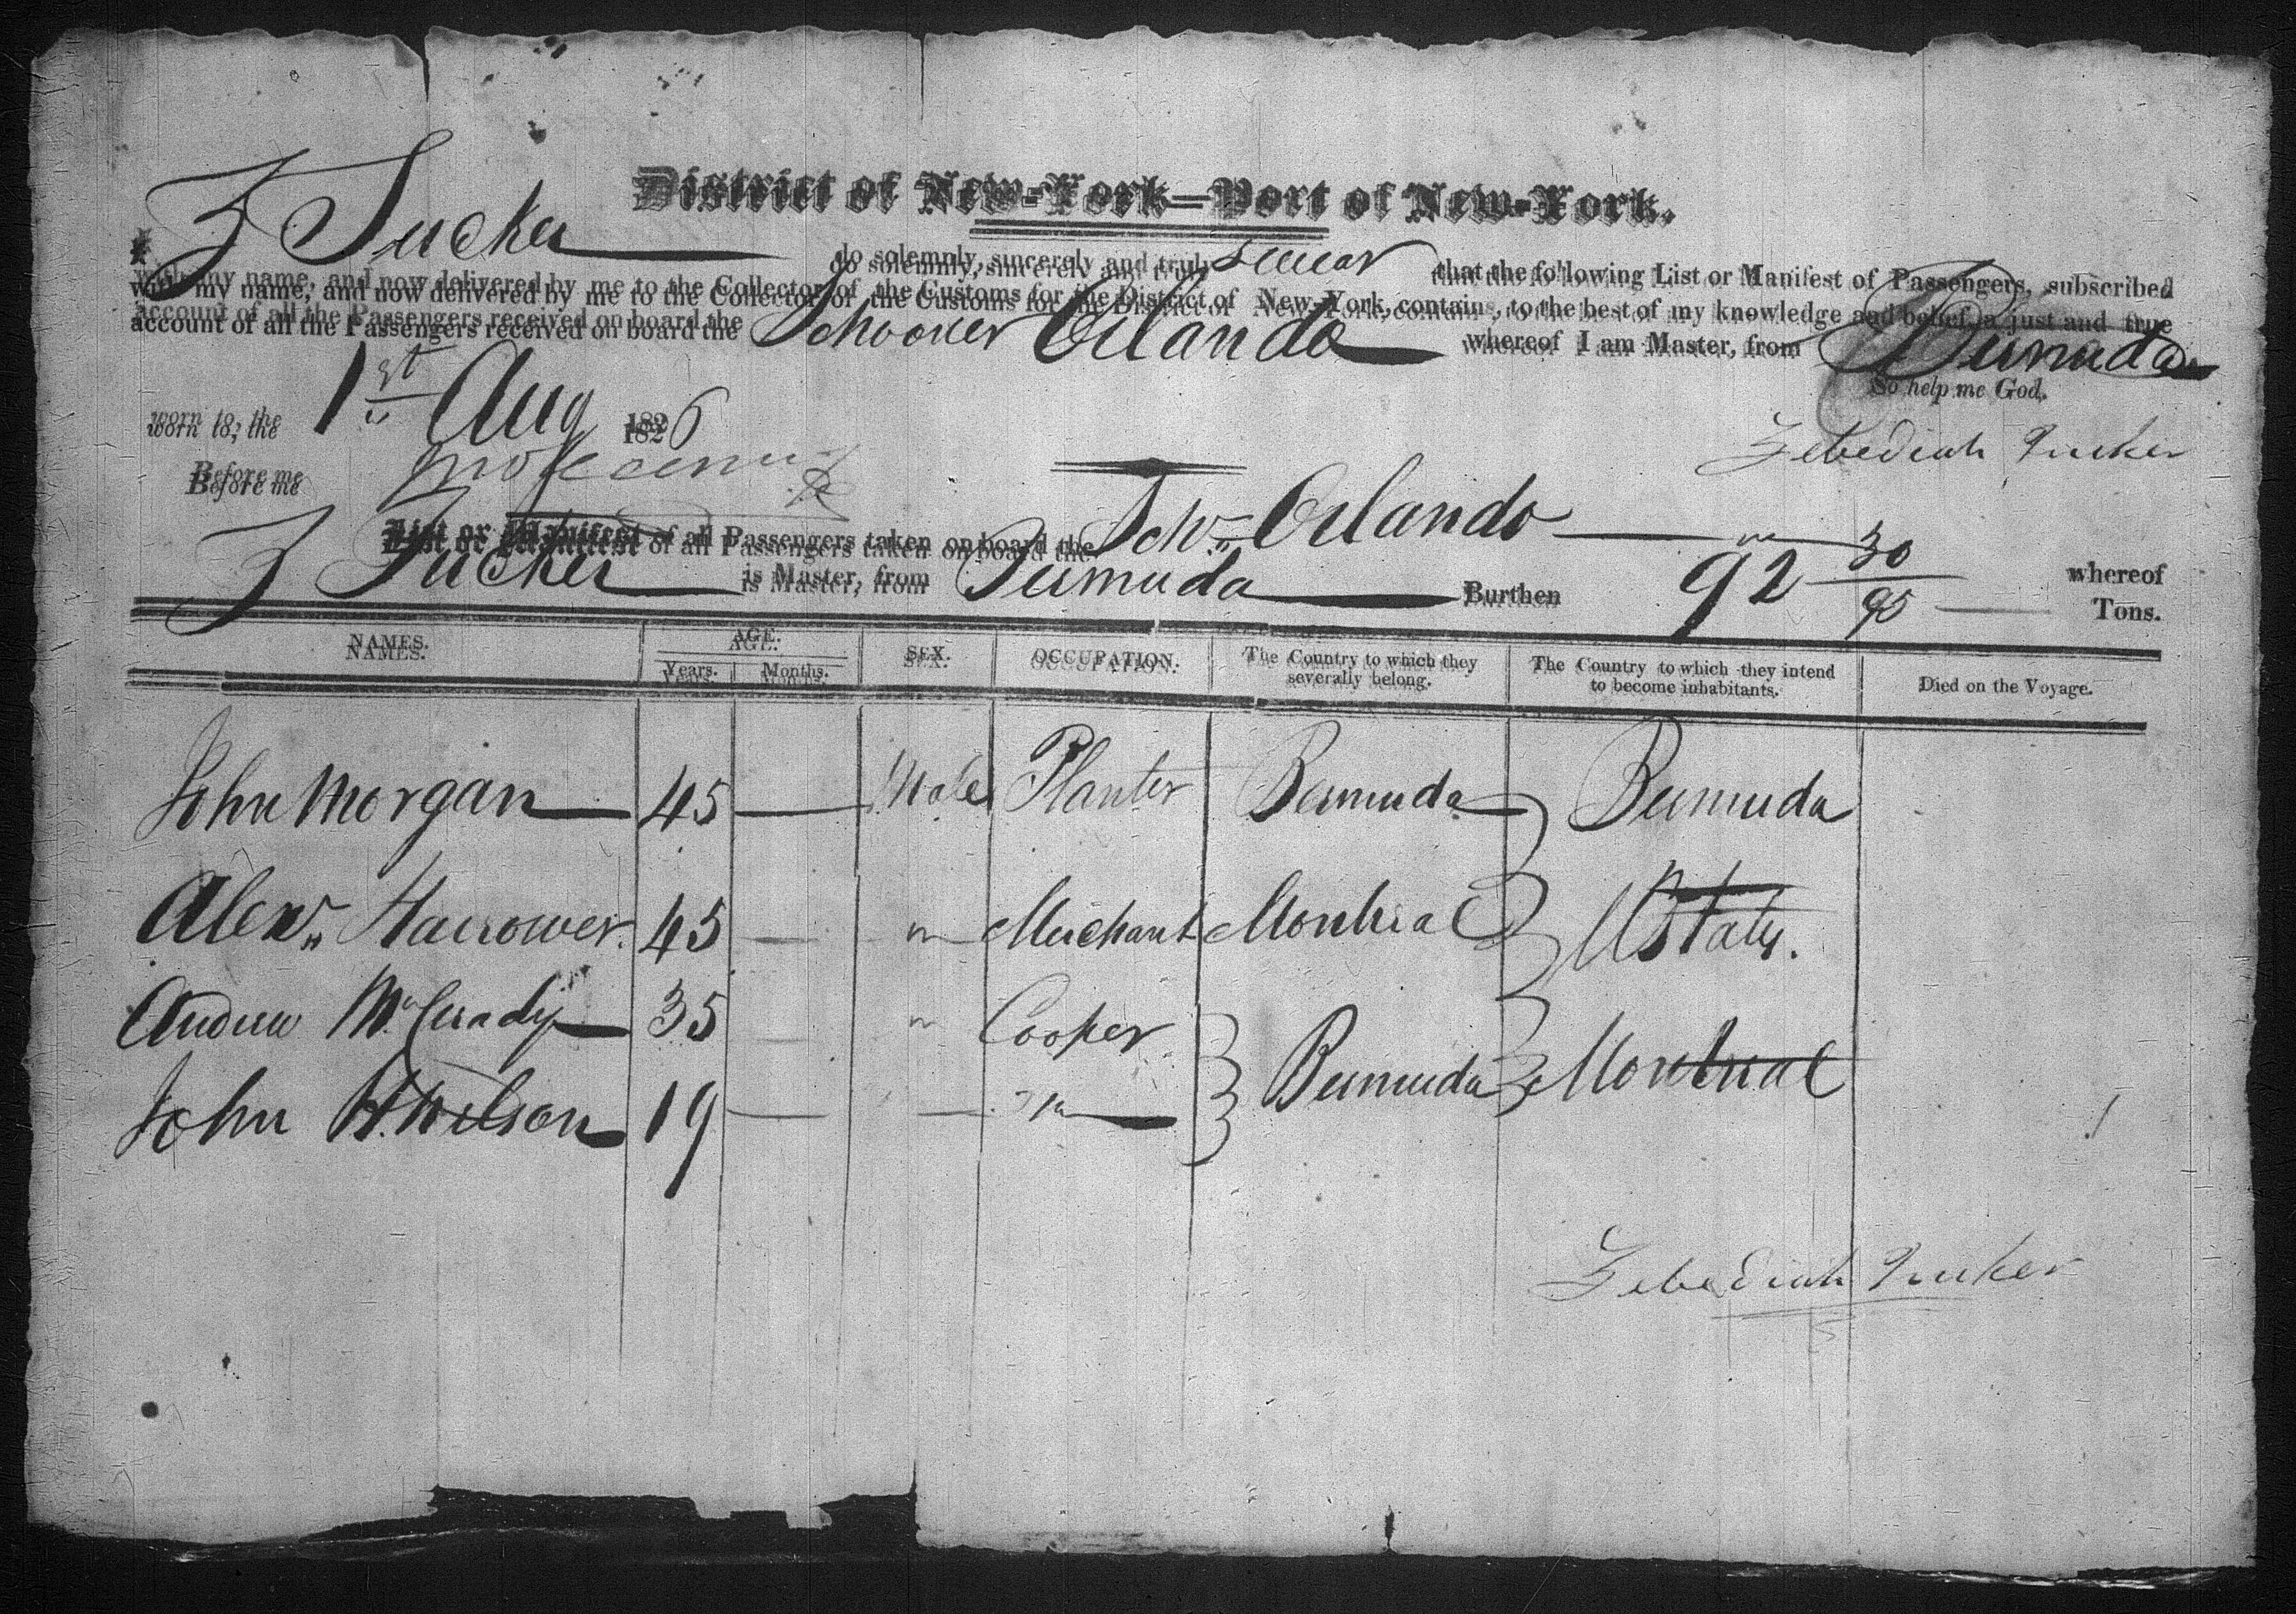 District of New-York—Port of New-York.
I, Z Tucker do solemnly, sincerely and truly swear that the following List or Manifest of Passengers, subscribed
with my name, and now delivered by me to the Collector of the Customs for the District of New-York, contains, to the best of my knowledge and belief, a just and true
account of all the Passengers received on board the Schooner Orlando whereof I am Master, from Bermuda
So help me God.
worn to, the 1st Aug 1826
Zebediah Tucker
Before me
List or Manifest of all Passengers taken on board the Schr Orlando whereof
Z Tucker is Master, from Bermuda Burthen 92 30/95 Tons.
NAMES. AGE. SEX. OCCUPATION. The Country to which they severally belong. The Country to which they intend to become inhabitants. Died on the Voyage.
Years. Months.
John Morgan 45 — Male Planter Bermuda Bermuda
Alexr Harrower 45 — " Merchant Montreal U States.
Andrew McCrady 35 — " Cooper
John H. Wilson 19 — — " Bermuda Montreal
Zebediah Tucker